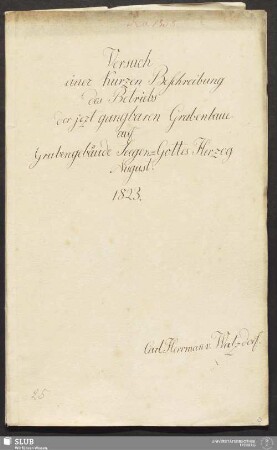 Versuch
einer kurzen Beschreibung
des Betriebs
der jezt gangbaren Grubenbaue
auf
Grubengebäude Seegen=Gottes Herzog
August.
1823.
Carl Herrmann v. Watzdorf.
25
SLUB
Wir führen Wissen.